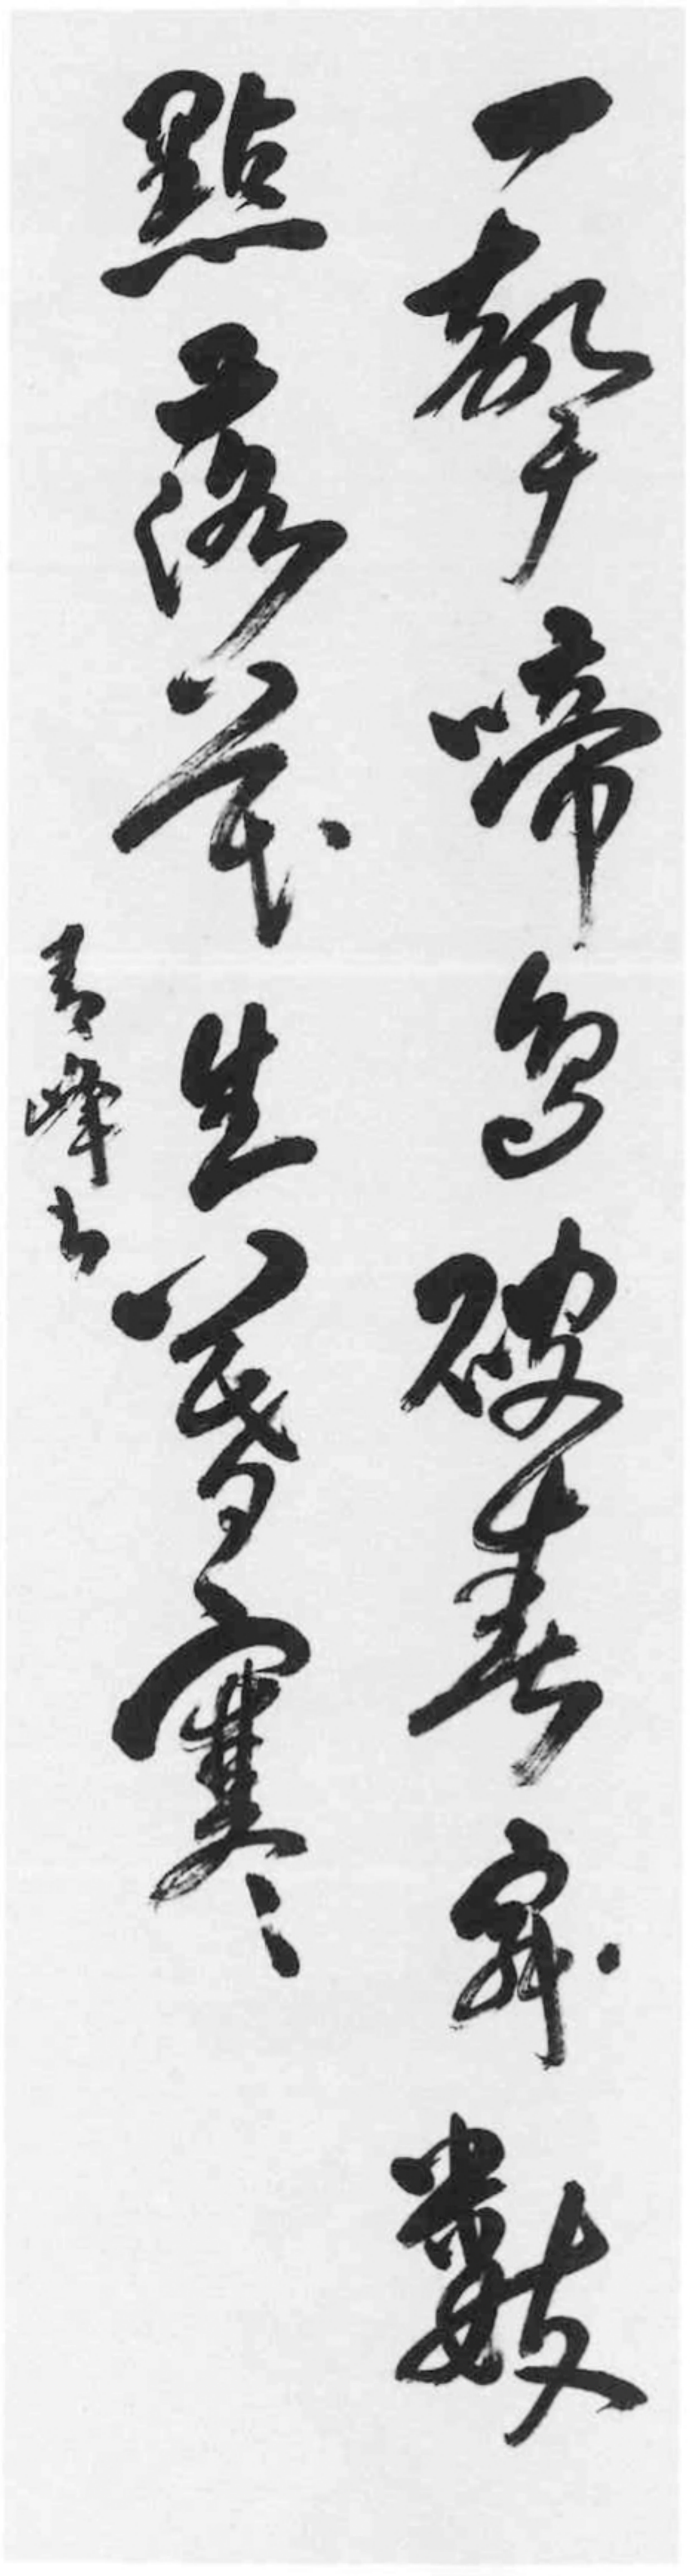 一聲啼鳥破春寂數
點落花生暮寒
青峰書